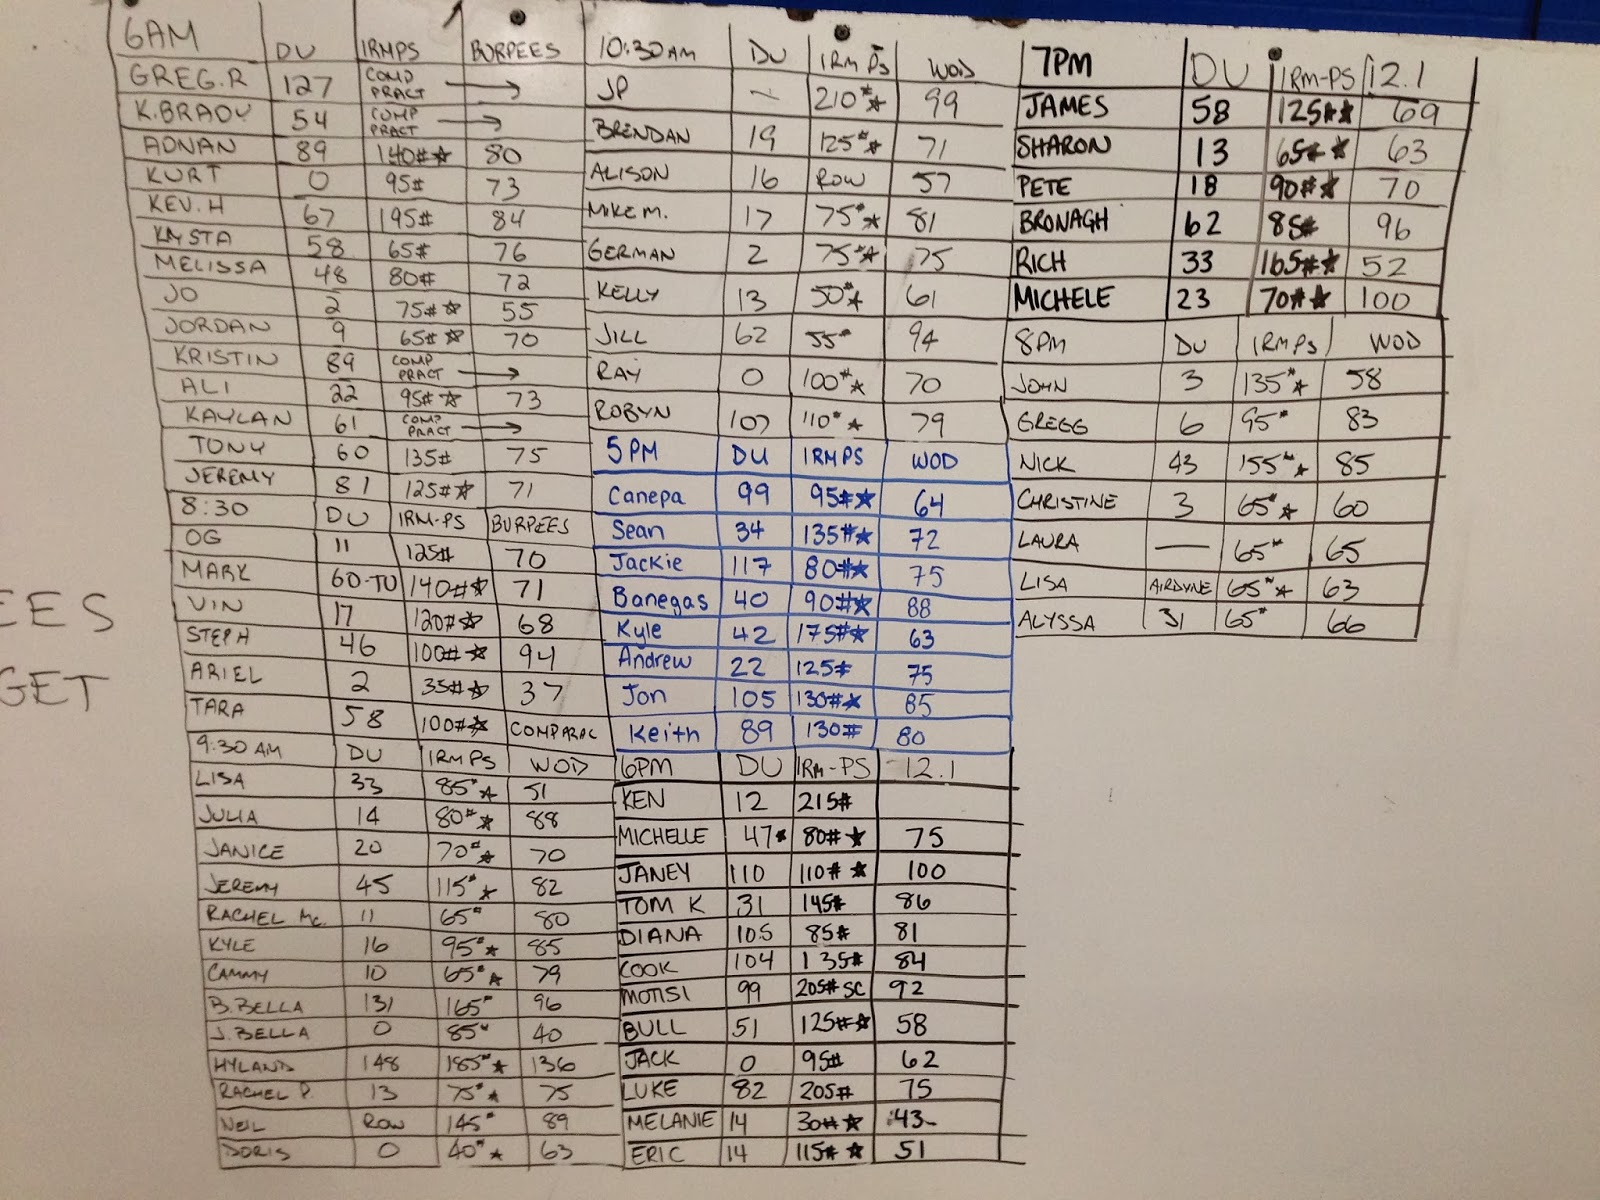 6AM DU 1RMPS BURPEES
GREG.R 127 COMP PRACT →
K.BRADY 54 COMP PRACT →
ADNAN 89 140#★ 80
KURT 0 95# 73
KEV.H 67 195# 84
KRYSTA 58 65# 76
MELISSA 48 80# 72
JO 2 75#★ 55
JORDAN 9 65#★ 70
KRISTIN 89 COMP PRACT →
ALI 22 95#★ 73
KAYLAN 61 COMP PRACT →
TONY 60 135# 75
JEREMY 81 125#★ 71
8:30 DU 1RM-PS BURPEES
OG 11 125# 70
MARK 60-TU 140#★ 71
VIN 17 120#★ 68
STEPH 46 100#★ 94
ARIEL 2 35#★ 37
TARA 58 100#★ COMPARAC
9:30AM DU 1RMPS WOD
LISA 33 85#★ 51
JULIA 14 80#★ 88
JANICE 20 70#★ 70
JEREMY 45 115#★ 82
RACHEL Mc. 11 65# 80
KYLE 16 95#★ 85
CAMMY 10 65#★ 79
B.BELLA 131 165# 96
J.BELLA 0 85# 40
HYLAND 148 185#★ 136
RACHEL P. 13 75#★ 75
NEIL ROW 145# 89
DORIS 0 40#★ 63
10:30AM DU 1RM PS WOD
JP ~ 210#★ 99
BRENDAN 19 125#★ 71
ALISON 16 ROW 57
MIKE M. 17 75#★ 81
GERMAN 2 75#★ 75
KELLY 13 50#★ 61
JILL 62 55# 94
RAY 0 100#★ 70
ROBYN 107 110#★ 79
5PM DU 1RMPS WOD
Canepa 99 95#★ 64
Sean 34 135#★ 72
Jackie 117 80#★ 75
Banegas 40 90#★ 88
Kyle 42 175#★ 63
Andrew 22 125# 75
Jon 105 130#★ 85
Keith 89 130# 80
6PM DU 1RM-PS 12.1
KEN 12 215#
MICHELLE 47* 80#★ 75
JANEY 110 110#★ 100
TOM K 31 145# 86
DIANA 105 85# 81
COOK 104 135# 84
MOTISI 99 205# SC 92
BULL 51 125#★ 58
JACK 0 95# 62
LUKE 82 205# 75
MELANIE 14 30#★ 43
ERIC 14 115#★ 51
7PM DU 1RM-PS 12.1
JAMES 58 125#★ 69
SHARON 13 65#★ 63
PETE 18 90#★ 70
BRONAGH 62 85# 96
RICH 33 165#★ 52
MICHELE 23 70#★ 100
8PM DU 1RMPS WOD
JOHN 3 135#★ 58
GREGG 6 95# 83
NICK 43 155#★ 85
CHRISTINE 3 65#★ 60
LAURA — 65# 65
LISA AIRDYNE 65#★ 63
ALYSSA 31 65# 66
EES
GET